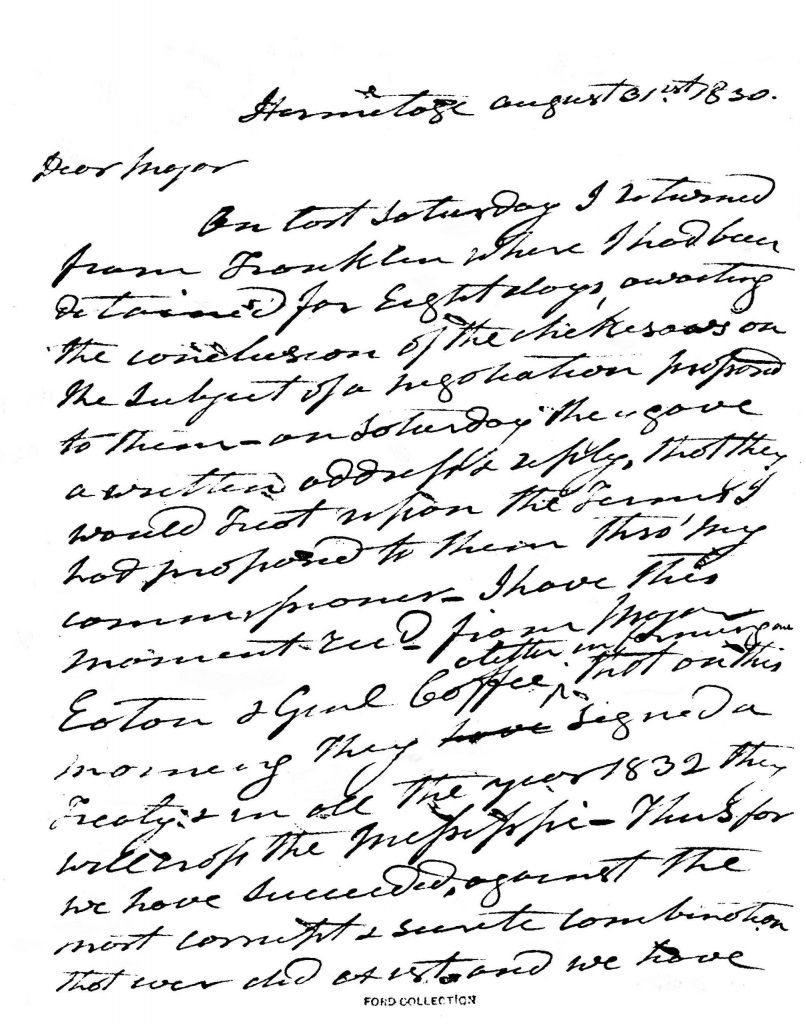 Hermitage august 31rst 1830.
Dear Major
On last saturday I returned
from Franklin where I had been
detained for Eight days, awaiting
the conclusion of the chikesaws on
the subject of a negotiation proposed
to them—on saturday they gave
a written address & reply, that they
would Treat upon the Terms I
had proposed to them thro' my
commissioners— I have this
moment recd— from Major
a letter informing me
Eaton & Genl Coffee, that on this
morning they have signed a
Treaty, & in all the year 1832 they
will cross the Mississippi— Thus far
we have succeeded, against the
most corrupt & secrete combination
that ever did exist, and we have
FORD COLLECTION